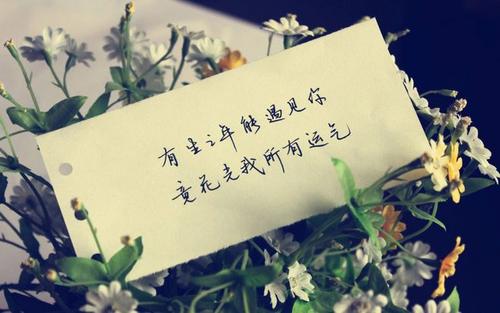 有生之年能遇见你
竟花光我所有运气